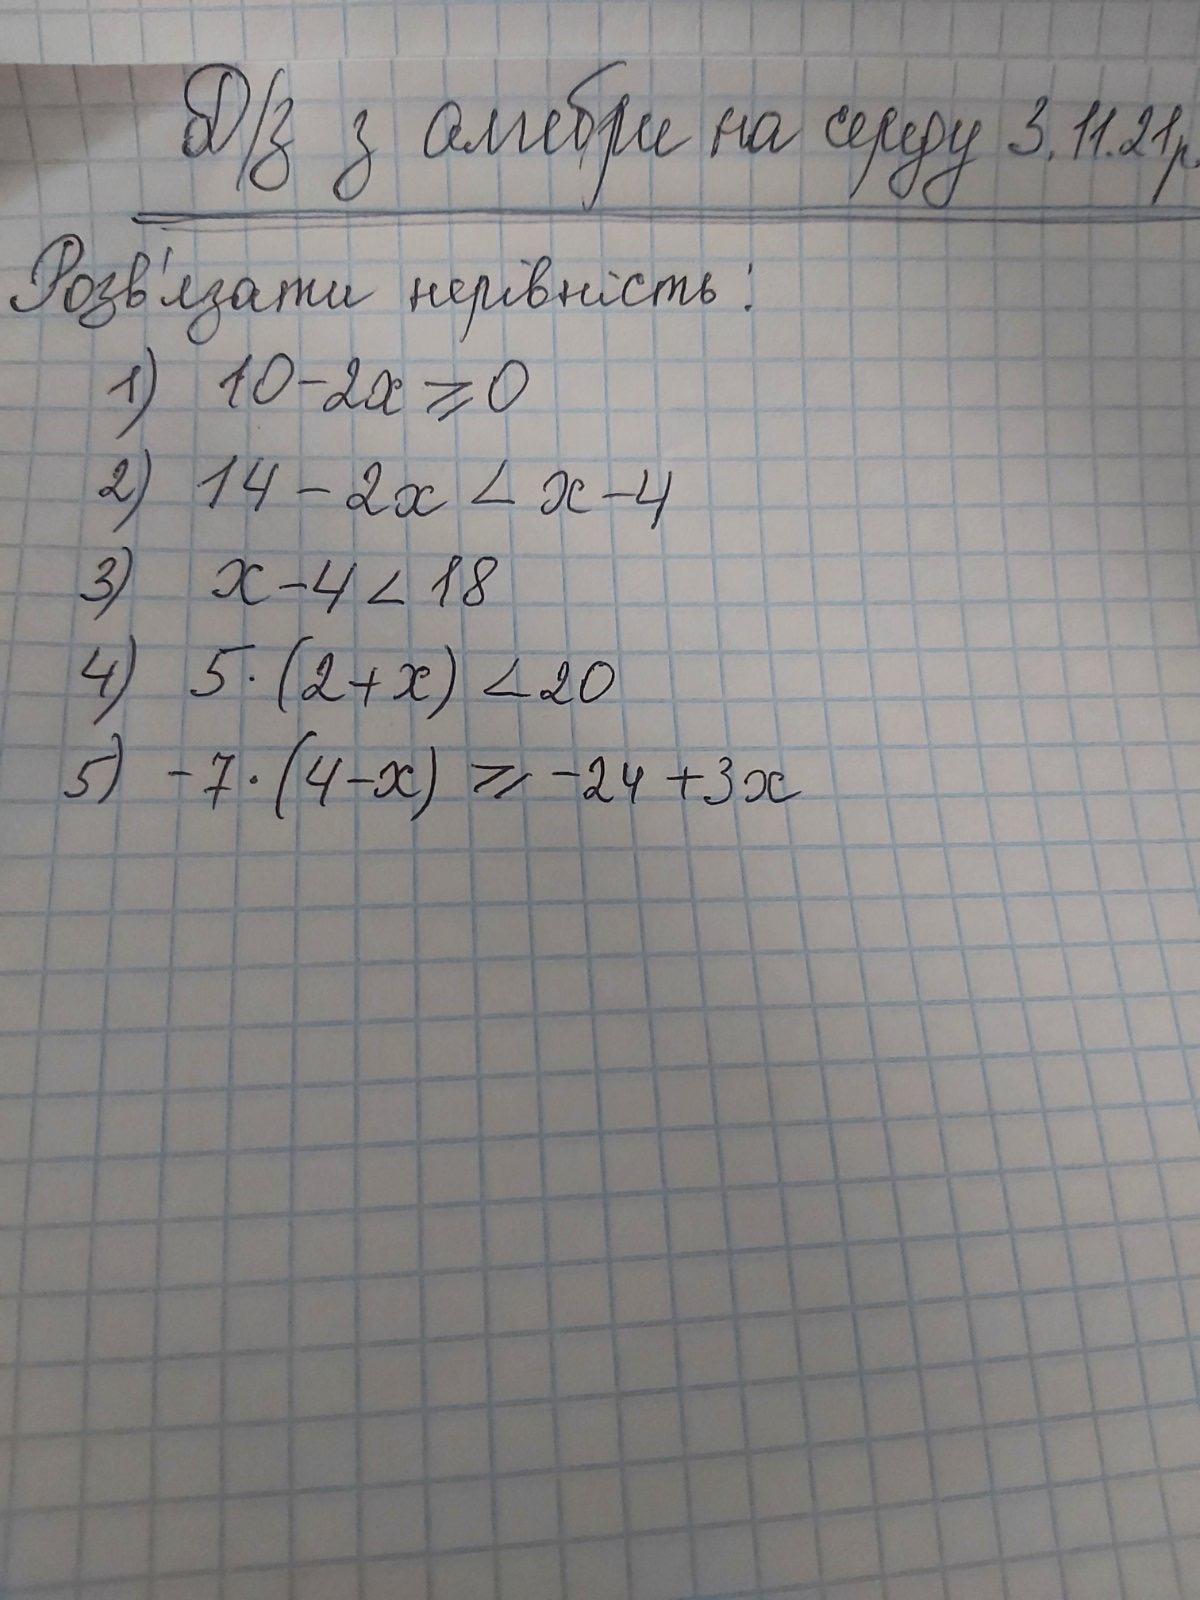 Д/З з алгебри на середу 3.11.21р.
Розв'язати нерівність:
1) 10-2x ⩾ 0
2) 14-2x < x-4
3) x-4 < 18
4) 5·(2+x) < 20
5) -7·(4-x) ⩾ -24+3x